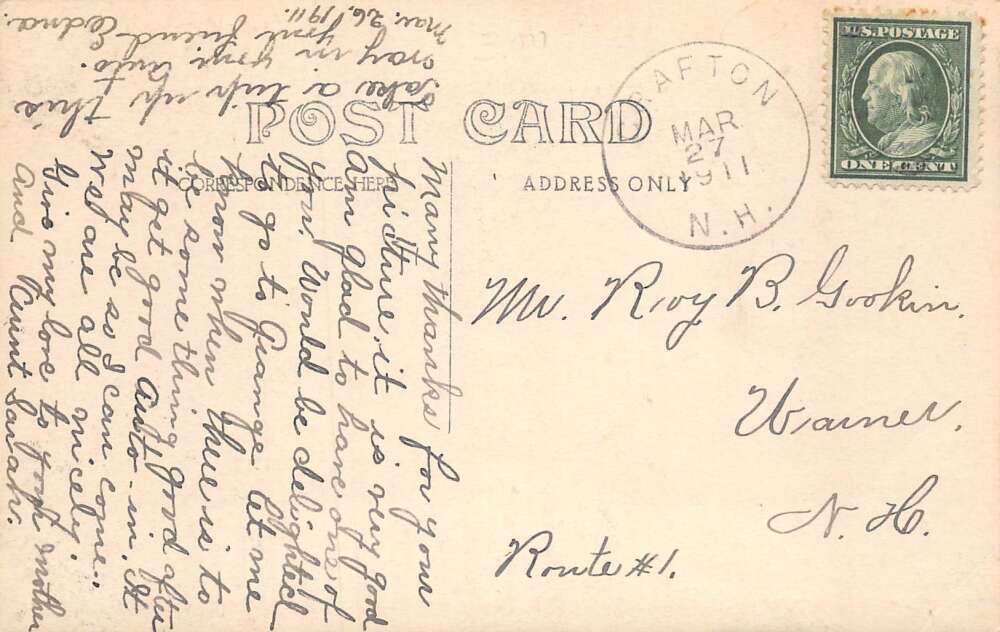 POST CARD
CORRESPONDENCE HERE
ADDRESS ONLY
U.S. POSTAGE
ONE CENT
GRAFTON
MAR
27
1911
N.H.
Mr. Roy B. Gookin.
Warner.
N. H.
Route #1.
Many thanks for your
picture, it is very good
am glad to have one of
you. Would be delighted
to go to Grange. Let me
know when there is to
be some thing good after
it get good Auto-in. It
may be so I can come.
We are all nicely.
Give my love to your mother
and Aunt Sarah.
Take a trip up this
way in your Auto.
your friend Edna.
Mar. 26, 1911.